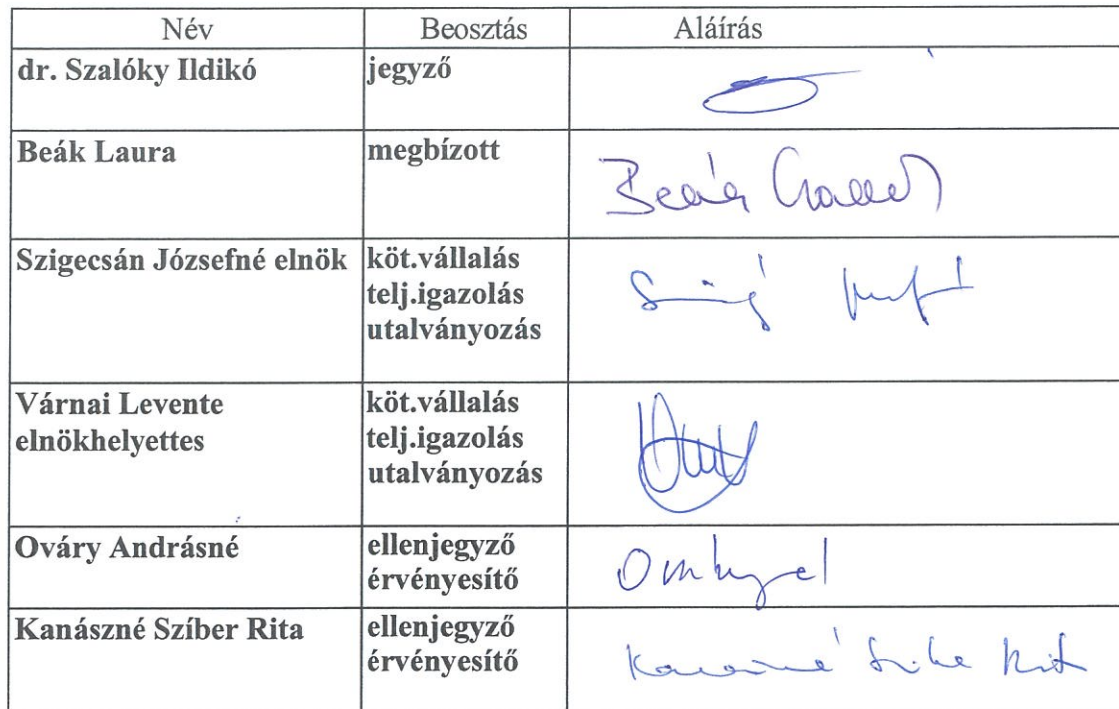 Név Beosztás Aláírás
dr. Szalóky Ildikó jegyző
Beák Laura megbízott
Beák
Szigecsán Józsefné elnök köt.vállalás
telj.igazolás
utalványozás
Várnai Levente köt.vállalás
elnökhelyettes telj.igazolás
utalványozás
Ováry Andrásné ellenjegyző
érvényesítő
Kanászné Szíber Rita ellenjegyző
érvényesítő
Kanászné Rita